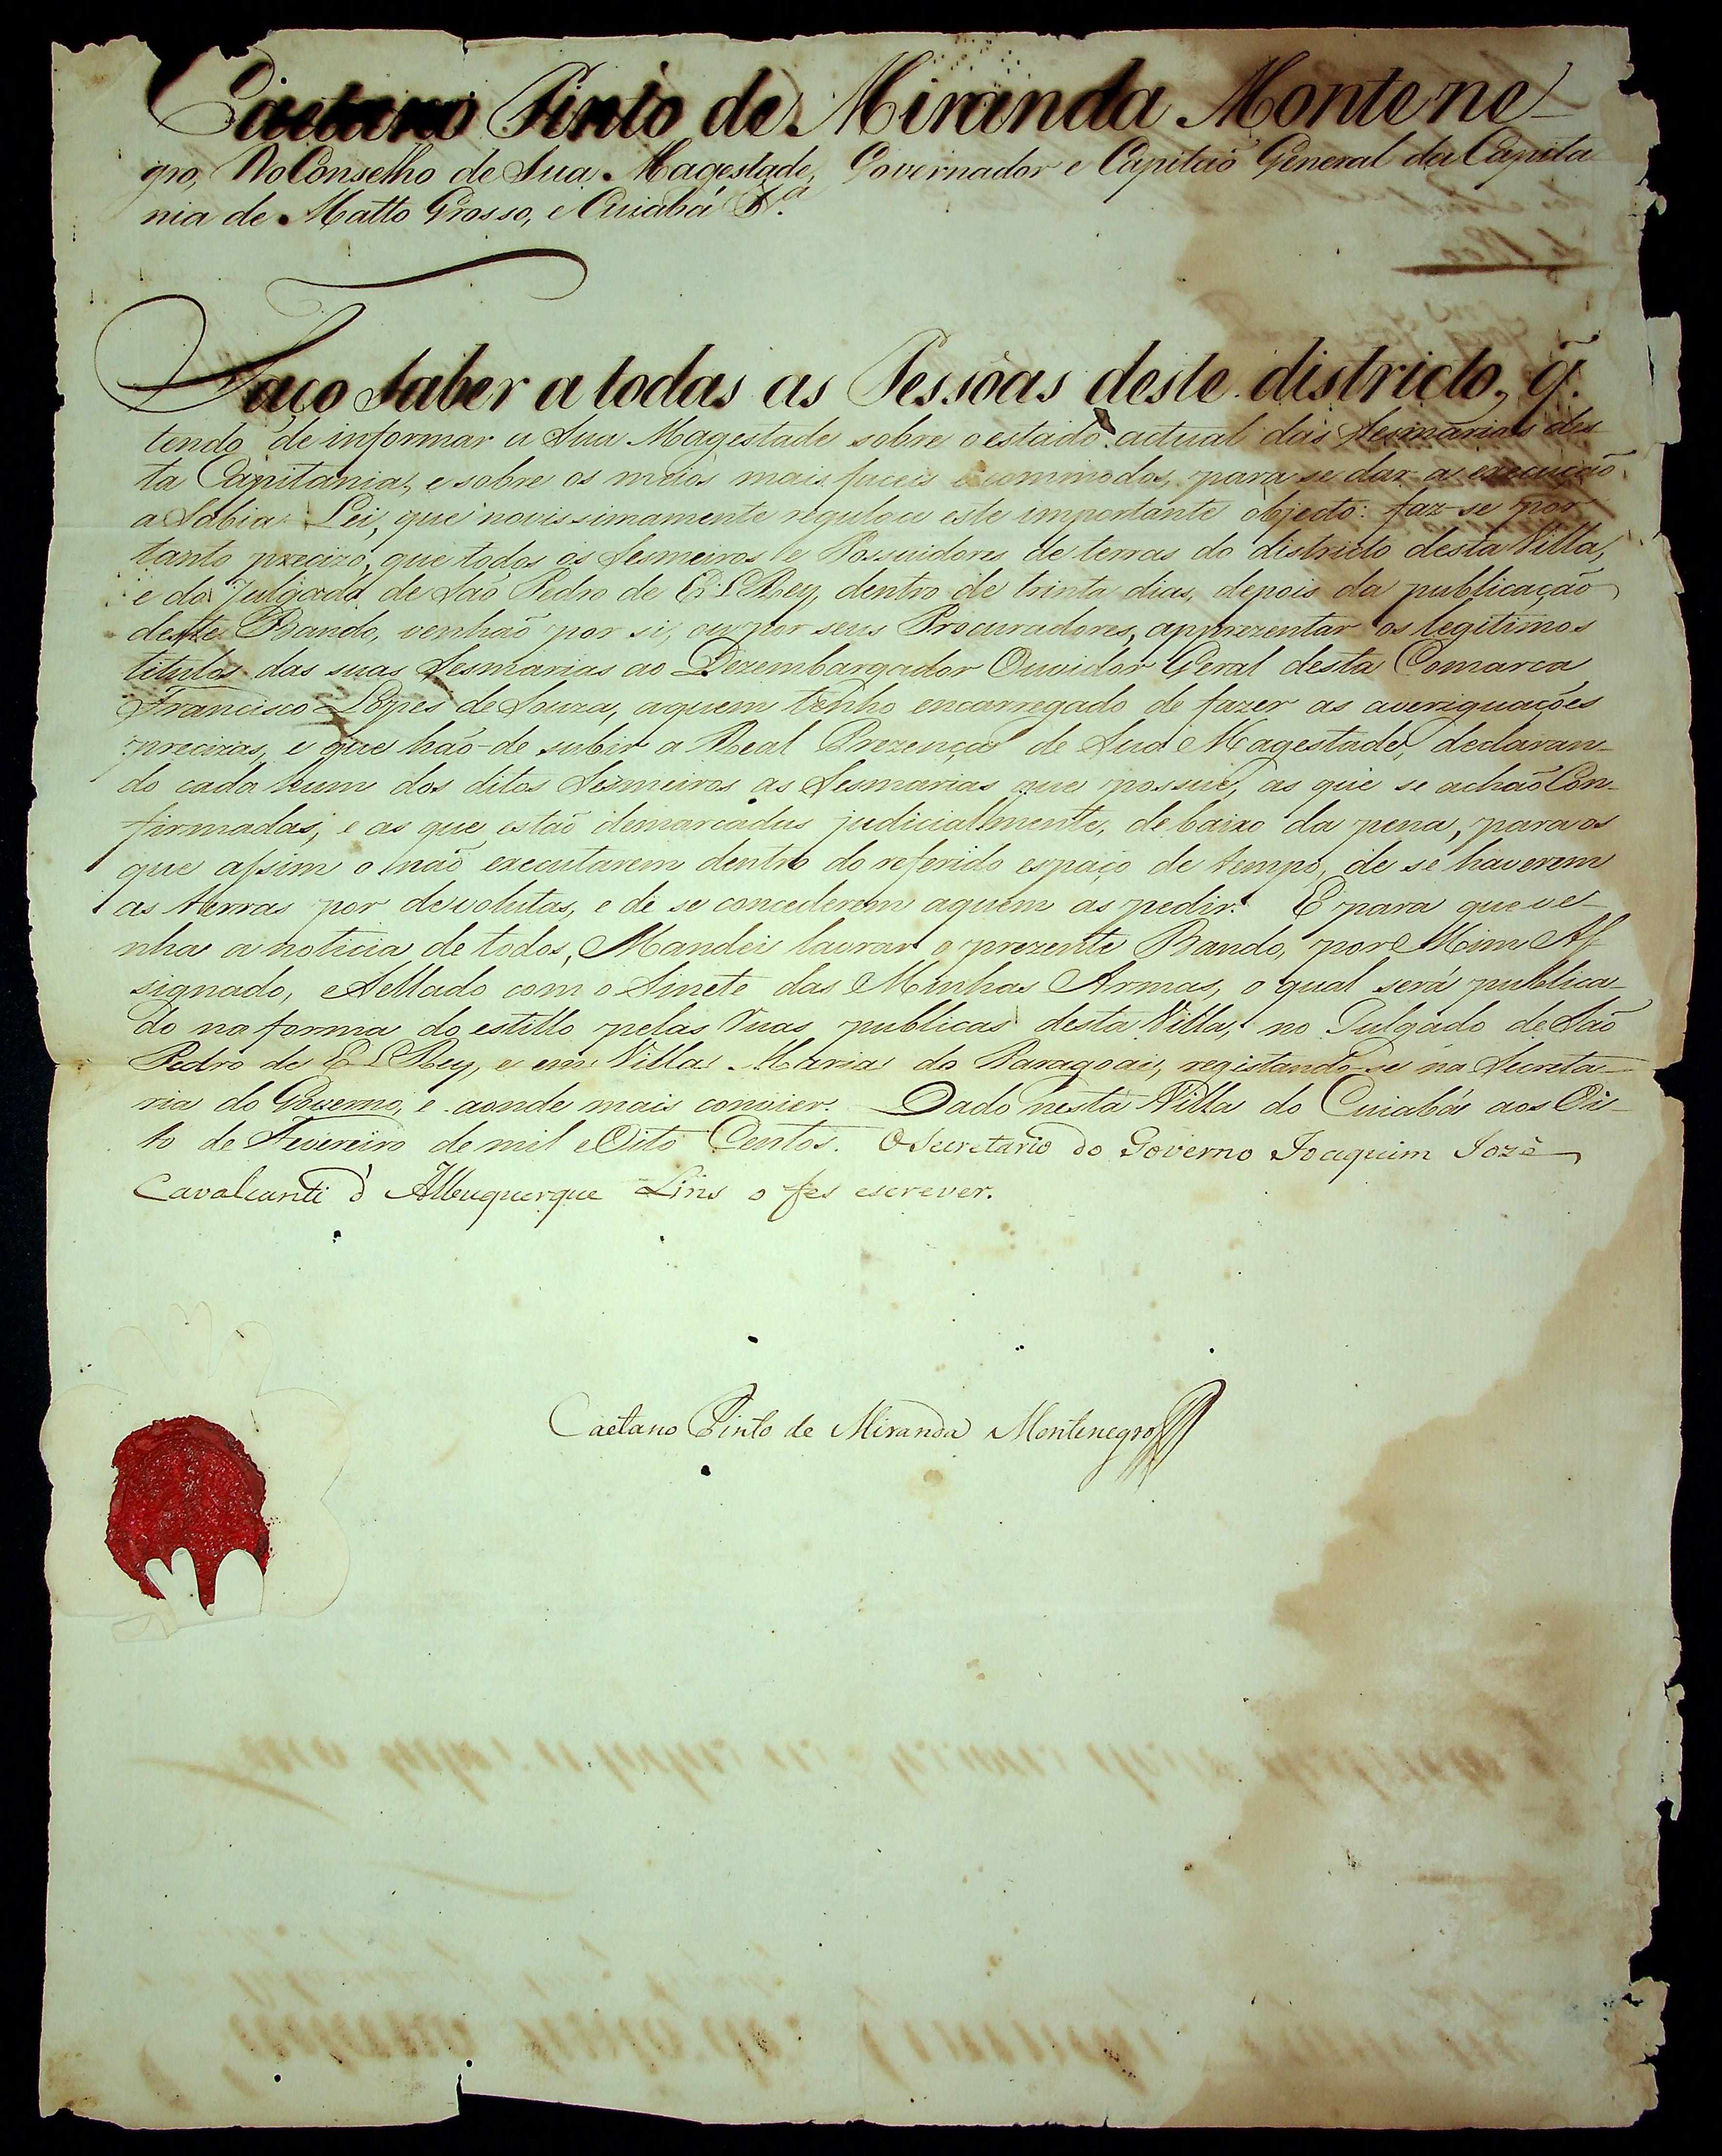 Caetano Pinto de Miranda Montene-
gro, Do Conselho de Sua Magestade, Governador e Capitaõ General da Capita
nia de Matto Grosso, e Cuiabá &.ª
Faço saber a todas as Pessôas deste districto, q̃.
tendo de informar a Sua Magestade sobre o estado actual das Sesmarias des-
ta Capitania, e sobre os meios mais faceis e commodos, para se dar a execução
a Sabia Lei, que novissimamente regulou este importante objecto: faz-se por
tanto precizo, que todos os Sesmeiros e Possuidores de terras do districto desta Villa,
e do Julgado de São Pedro de El Rey, dentro de trinta dias, depois da publicação
deste Bando, venhão por si, ou por seus Procuradores, apprezentar os legitimos
titulos das suas Sesmarias ao Dezembargador Ouvidor Geral desta Comarca
Francisco Lopes de Souza, aquem tenho encarregado de fazer as averiguações
precizas, e que hão-de subir a Real Prezença de Sua Magestade, declaran-
do cada hum dos ditos Sesmeiros as Sesmarias que possue, as que se achão Con-
firmadas, e as que estão demarcadas judicialmente, debaixo da pena, para os
que assim o não executarem dentro do referido espaço de tempo, de se haverem
as terras por devolutas, e de se concederem aquem as pedir. E para que ve-
nha a noticia de todos, Mandei lavrar o prezente Bando, por Mim As-
signado, e Sellado com o Sinete das Minhas Armas, o qual será publica-
do na forma do estillo pelas Ruas publicas desta Villa, no Julgado de São
Pedro de El Rey, e em Villa Maria do Paragoai, registando-se na Secreta-
ria do Governo, e aonde mais convier. Dado nesta Villa do Cuiabá aos Oi-
to de Fevereiro de mil e Oito Centos. O Secretario do Governo Joaquim Jozê
Cavalcanti d'Albuquerque Lins o fes escrever.
Caetano Pinto de Miranda Montenegro